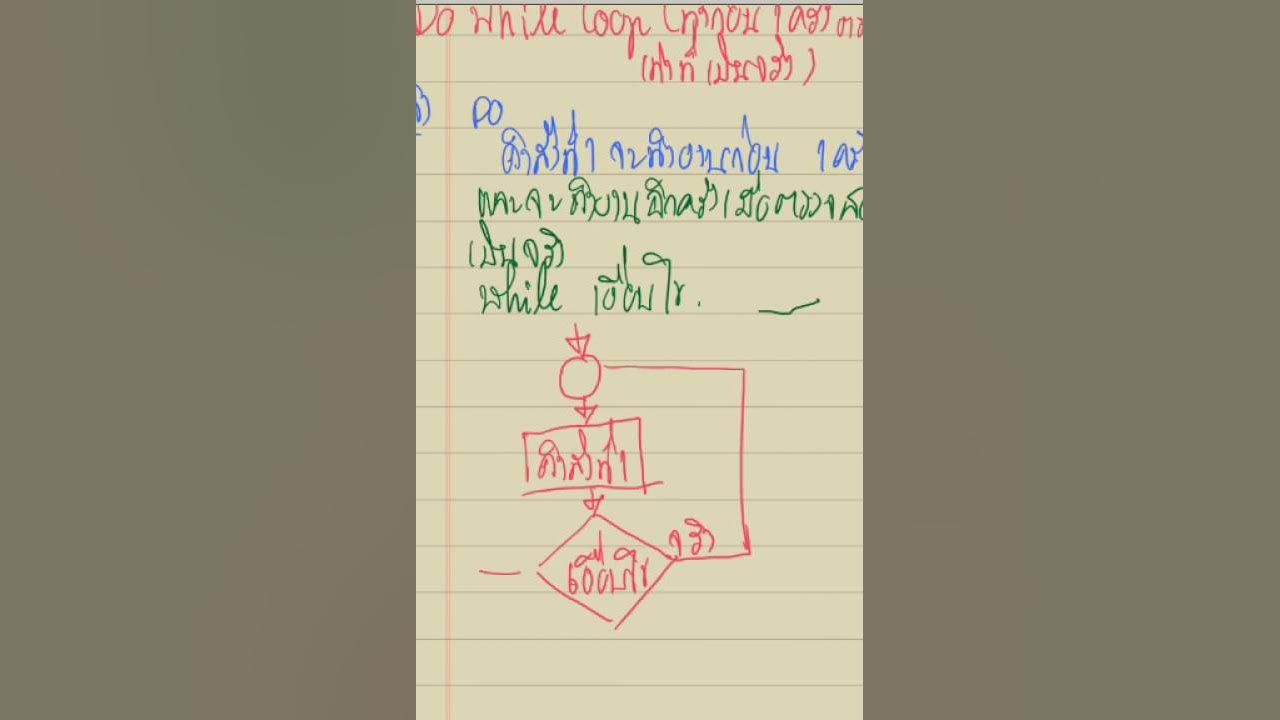 Do While Loop (ทำก่อน 1 ครั้ง
เท่าที่ เป็นจริง)
DO
คำสั่งที่ 1 จะทำงานก่อน 1
และจะทำงานอีกครั้งเมื่อตรวจ
เป็นจริง
While เงื่อนไข.
คำสั่งที่ 1
จริง
เงื่อนไข